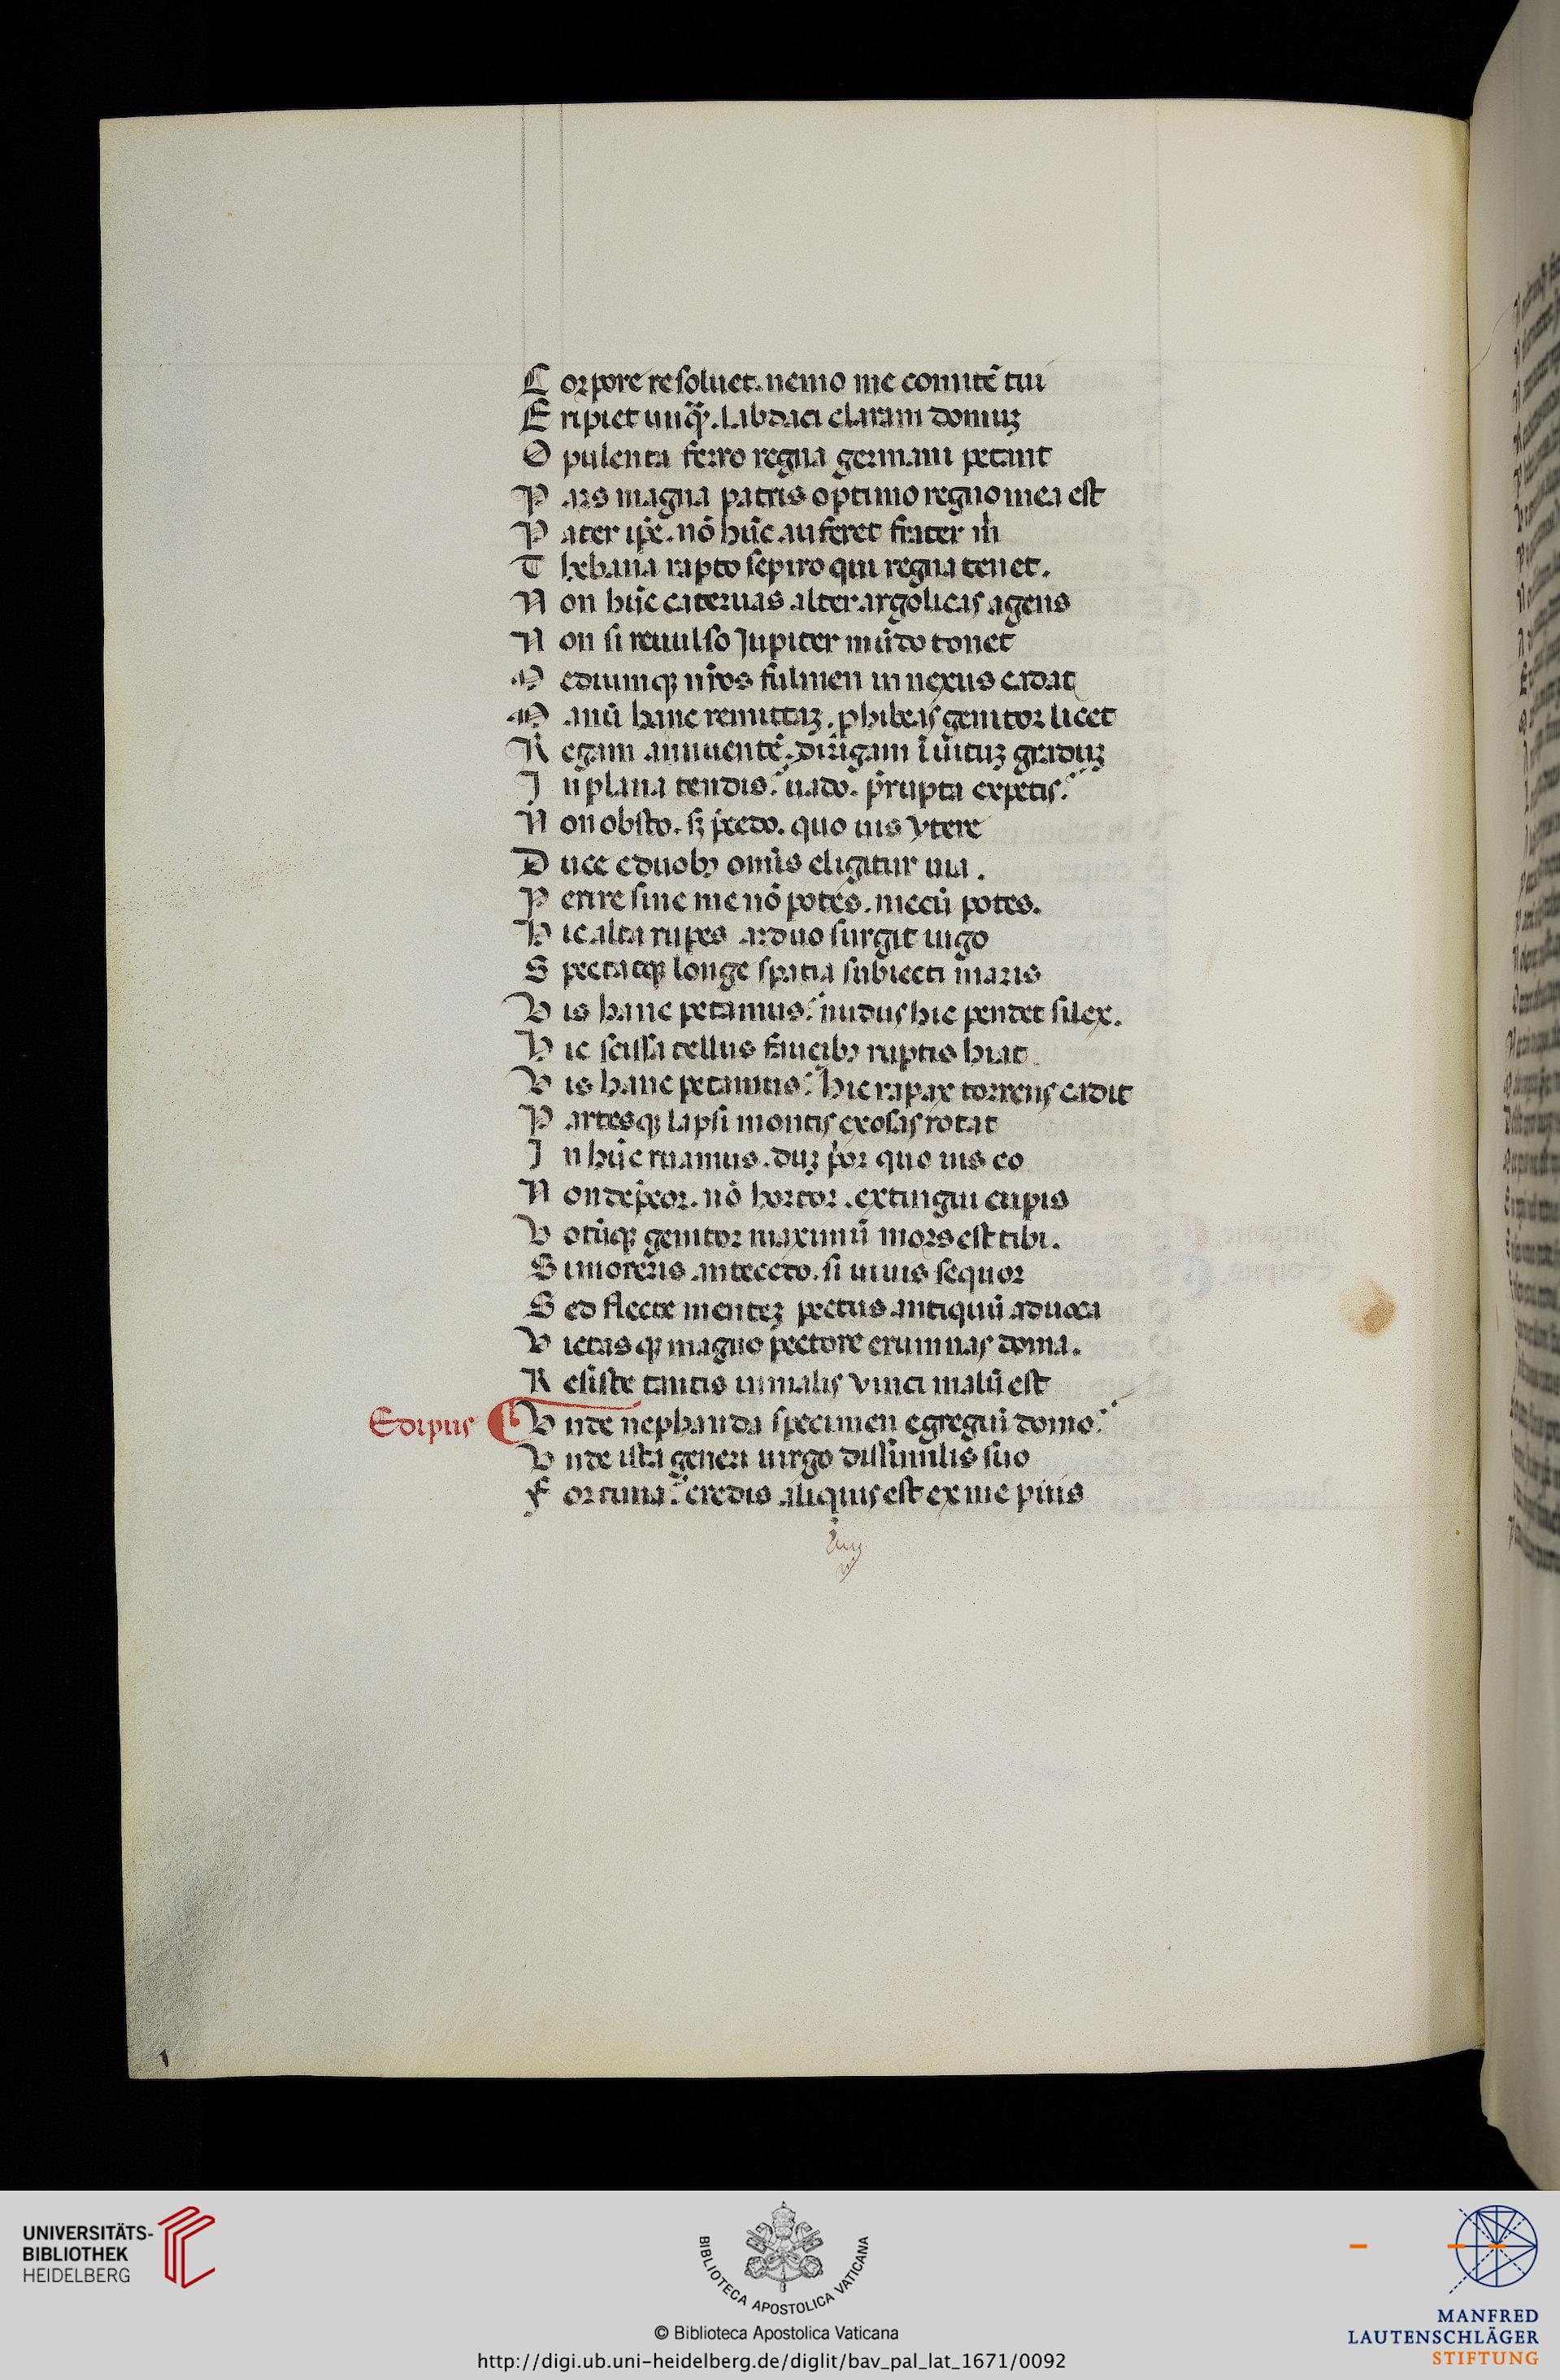 C orpore resoluet. nemo me comitē tui
E ripiet unq̄ꝫ. labdaci claram domuꝫ
O pulenta ferro regna germani petant
P ars magna patris optimo regno mea est
P ater ip̄e. nō hūc auferet frater m̄
T hebana rapto sceptro qui regna tenet.
N on hūc cateruas alter argolicas agens
N on si reuulso Jupiter mūdo tonet
M ediumqꝫ nr̄os fulmen in nexus cadat
M anū hanc remittaꝫ. phibeas genitor licet
R egam annuentē. dirigam īuituꝫ graduꝫ
I n plana tendis. uado. p̄rupta expetis.
N on obsto. sꝫ p̄cedo. quo uis vtere
D uce e duobꝫ omīs eligitur uia.
P erire sine me nō potes. mecū potes.
H ic alta rupes arduo surgit iugo
S pectatqꝫ longe spatia subiecti maris
V is hanc petamus. nudus hic pendet silex.
H ic scissa tellus faucibꝫ ruptis hiat
V is hanc petamus. hic rapax torrens cadit
P artesqꝫ lapsi montis exosas rotat
I n hūc ruamus. duꝫ p̄or quo uis eo
N on dep̄cor. nō hortor. extingui cupis
V otūqꝫ genitor maximū mors est tibi.
S i moreris antecedo. si uiuis sequor
S ed flecte menteꝫ pectus antiquū aduoca
V ictasqꝫ magno pectore erumnas doma.
R esiste tantis in malis vinci malū est
Edipus V nde nephanda specimen egregiū domo.
V nde ista generi uirgo dissimilis suo
F ortuna. credis aliquis est ex me pius
1
UNIVERSITÄTS-
BIBLIOTHEK
HEIDELBERG
BIBLIOTECA APOSTOLICA VATICANA
© Biblioteca Apostolica Vaticana
http://digi.ub.uni-heidelberg.de/diglit/bav_pal_lat_1671/0092
MANFRED
LAUTENSCHLÄGER
STIFTUNG